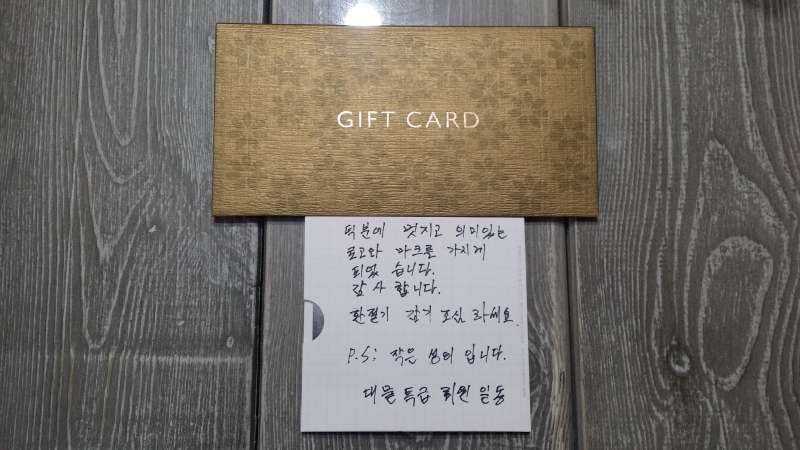 GIFT CARD
덕분에 멋지고 의미있는
로고와 마크를 가지게
되었 습니다.
감사 합니다.
환절기 감기 조심 하세요.
P.S: 작은 성의 입니다.
대물 특급 회원 일동